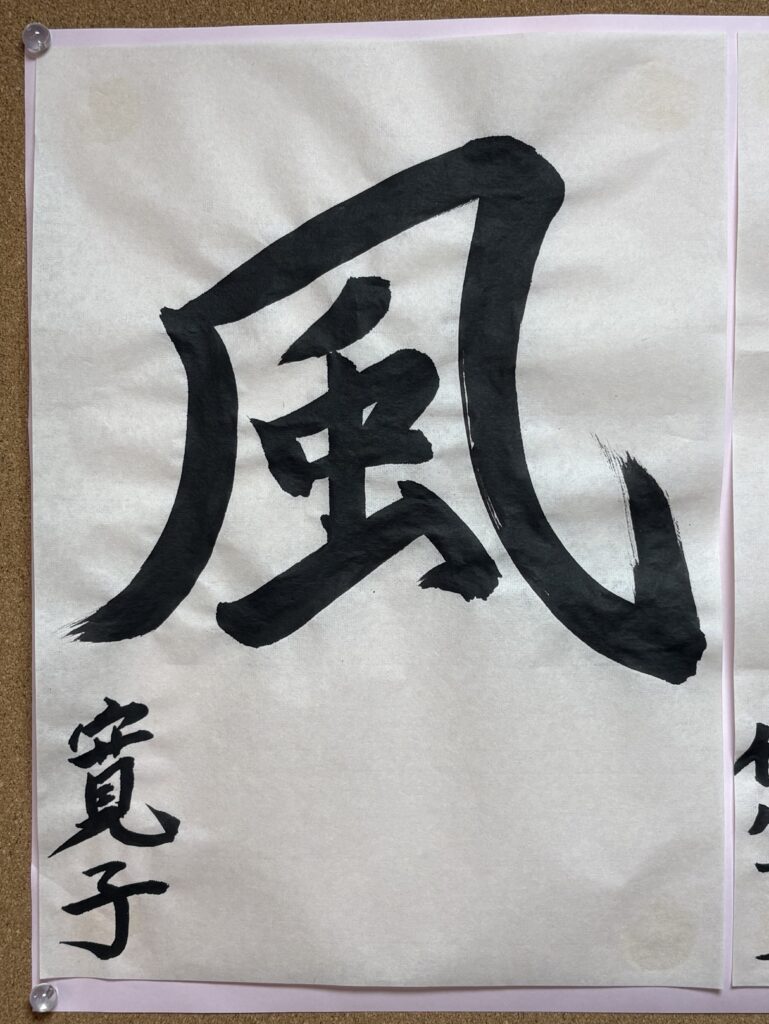 風
寛子